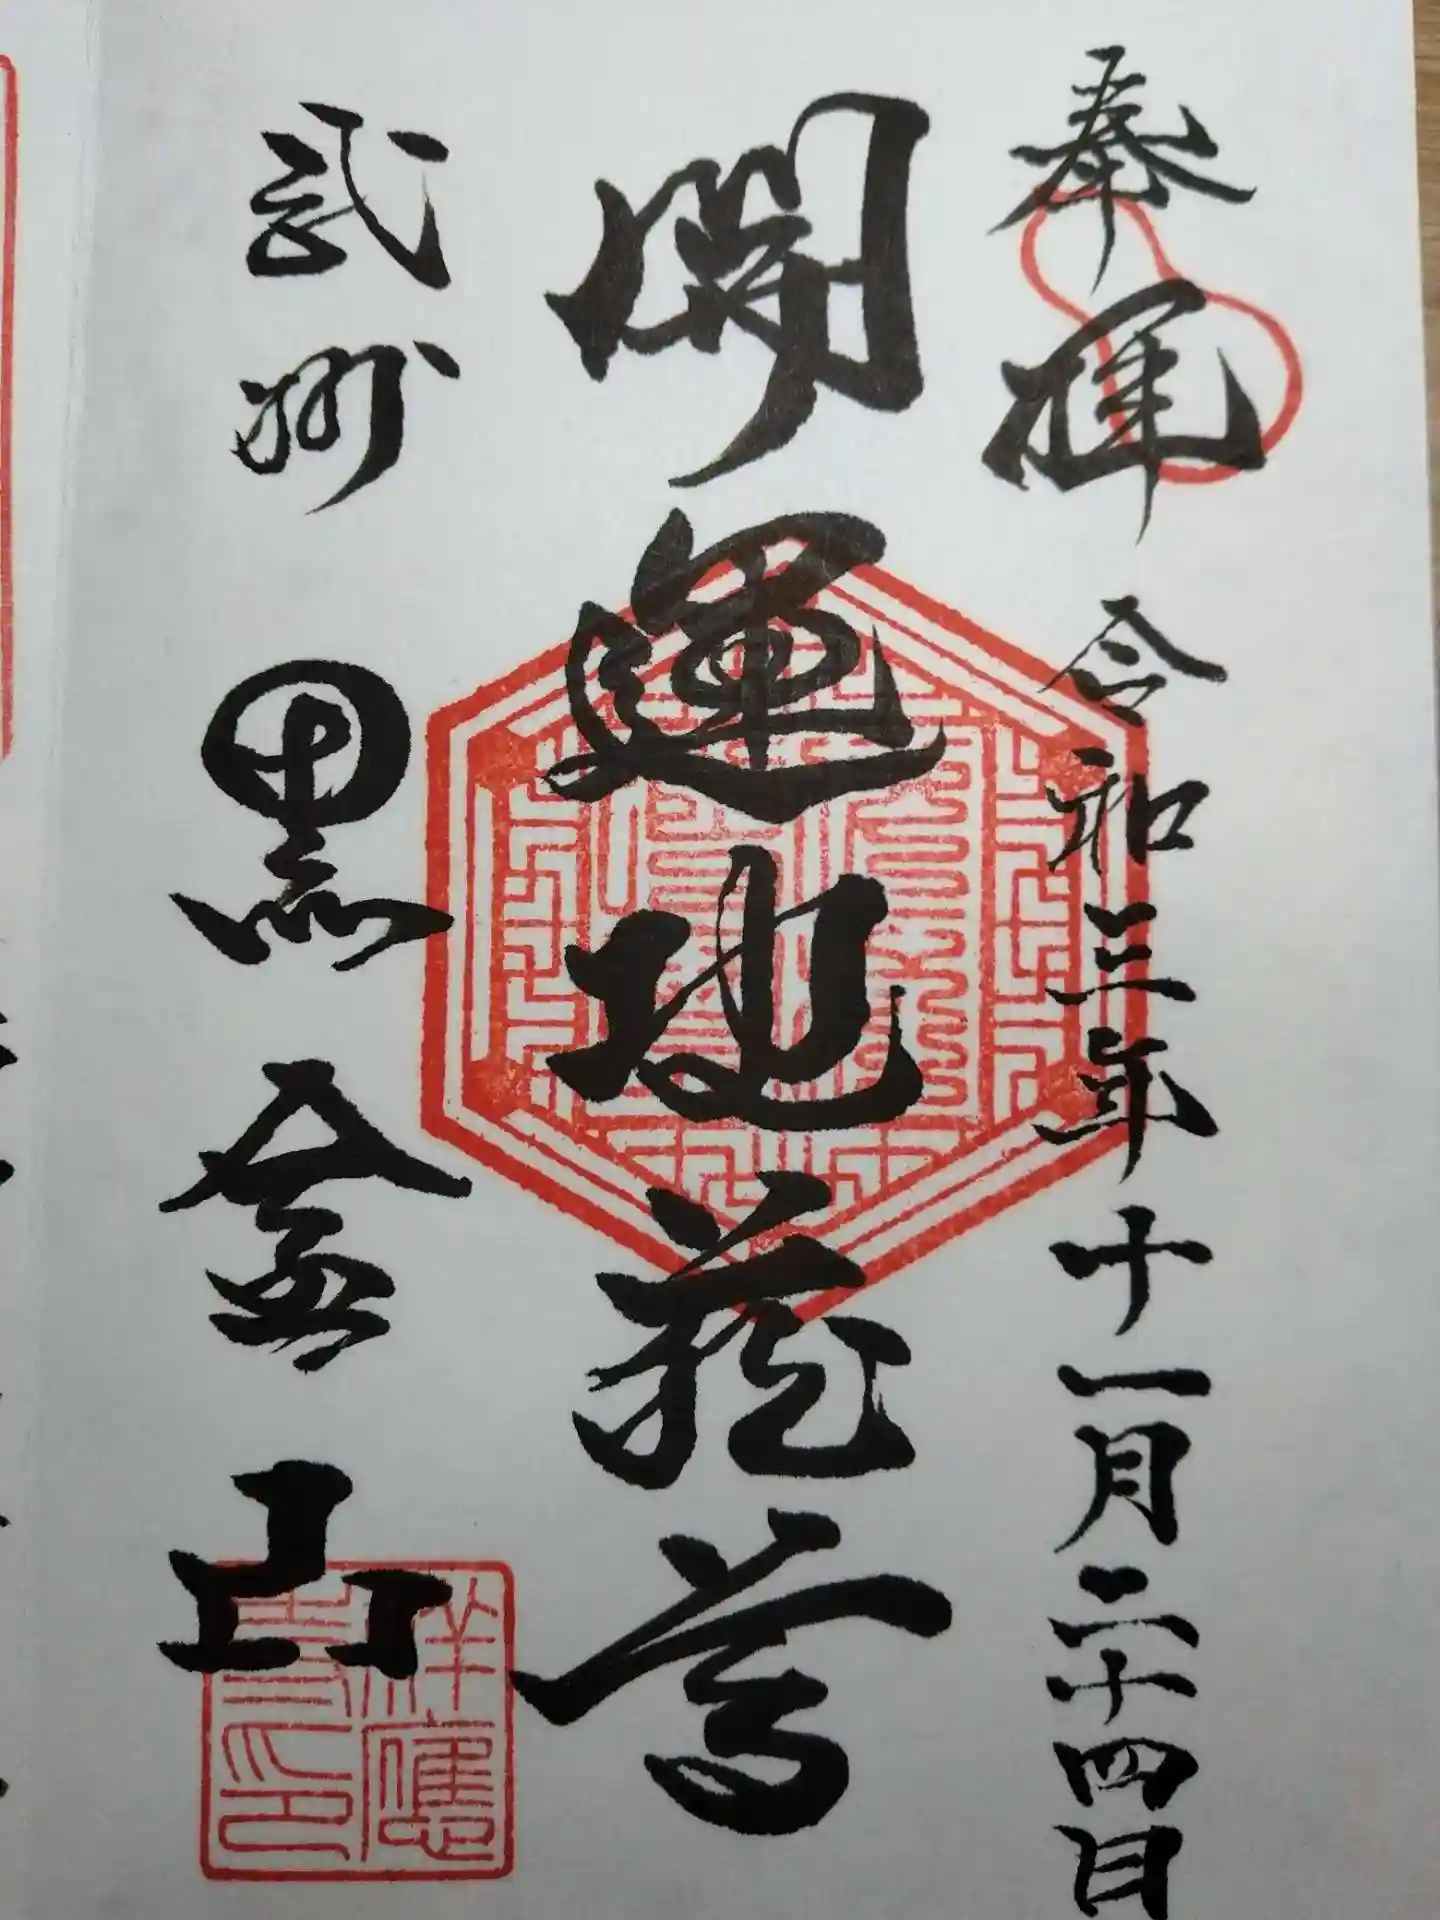 奉拝 令和三年十一月二十四日
開運地蔵尊
武州 黒金山
祥應
書印